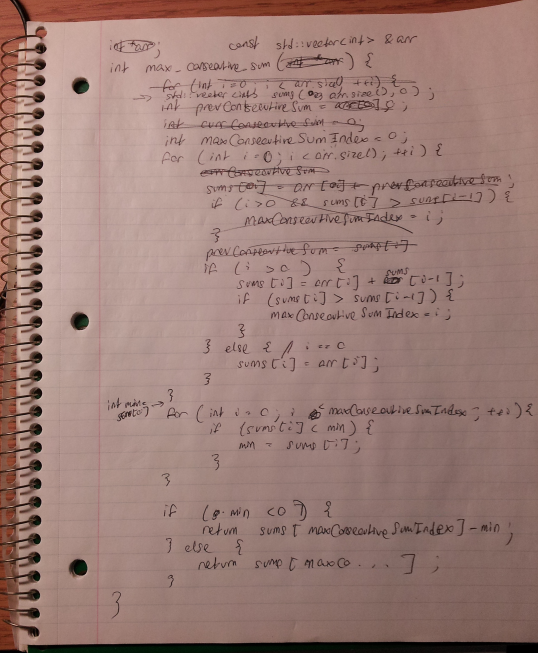 int *arr;
const std::vector<int> & arr
int max_consecutive_sum (int *arr) {
for (int i=0; i < arr.size(); ++i) {
→ std::vector<int> sums(arr.size(), 0);
int prevConsecutiveSum = arr[0] 0;
int currConsecutive Sum = 0;
int maxConsecutiveSumIndex = 0;
for (int i=0; i < arr.size(); ++i) {
currConsecutiveSum
sums[i] = arr[0] + prevConsecutiveSum;
if (i>0 && sums[i] > sums[i-1]) {
maxConsecutiveSumIndex = i;
}
prevConsecutiveSum = sums[i]
if (i > 0) {
sums[i] = arr[i] + sums[i-1];
if (sums[i] > sums[i-1]) {
maxConsecutiveSumIndex = i;
}
} else { // i == 0
sums[i] = arr[i];
}
}
int min = →
for (int i = 0; i < maxConsecutiveSumIndex; ++i) {
if (sums[i] < min) {
min = sums[i];
}
}
if (min < 0) {
return sums[maxConsecutiveSumIndex] - min;
} else {
return sums[maxCo...];
}
}